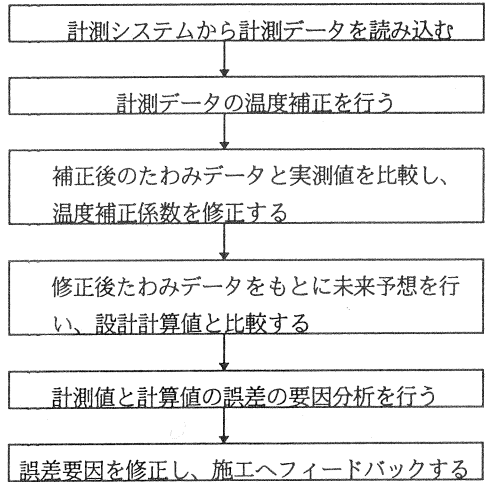 計測システムから計測データを読み込む
計測データの温度補正を行う
補正後のたわみデータと実測値を比較し、
温度補正係数を修正する
修正後たわみデータをもとに未来予想を行
い、設計計算値と比較する
計測値と計算値の誤差の要因分析を行う
誤差要因を修正し、施工へフィードバックする